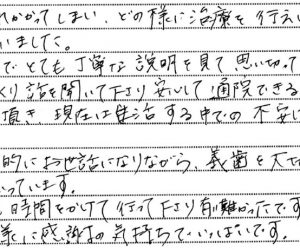 かかってしまい、どの様に治療を行え
いました。
でとても丁寧な説明を見て思い切って
くり話を聞いて下さり安心して通院できる
頂き現在は生活する中での不安に
的にお世話になりながら、義歯を大切
っています。
時間をかけて行って下さり有難かったです
様に感謝の気持ちでいっぱいです。